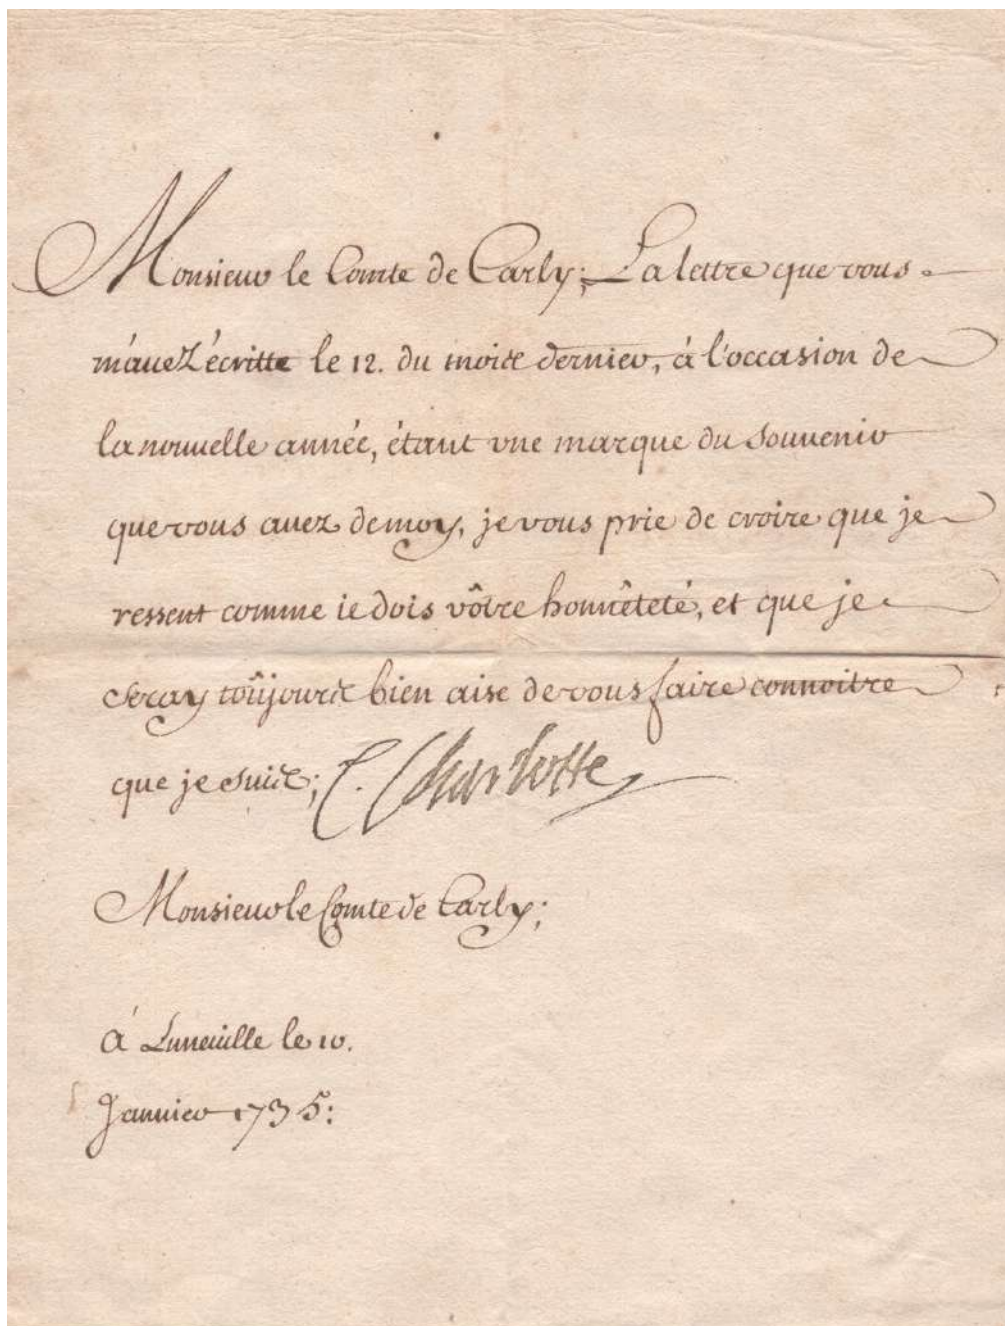 Monsieur le Comte de Carly; La lettre que vous
m'auez écritte le 12. du mois dernier, à l'occasion de
la nouuelle année, étant vne marque du souuenir
que vous auez de moy, je vous prie de croire que je
ressent comme ie dois vôtre honnêteté, et que je
seray toûjours bien aise de vous faire connoitre
que je suis; E. Charlotte
Monsieur le Comte de Carly;
à Luneuille le 10.
Januier 1735: